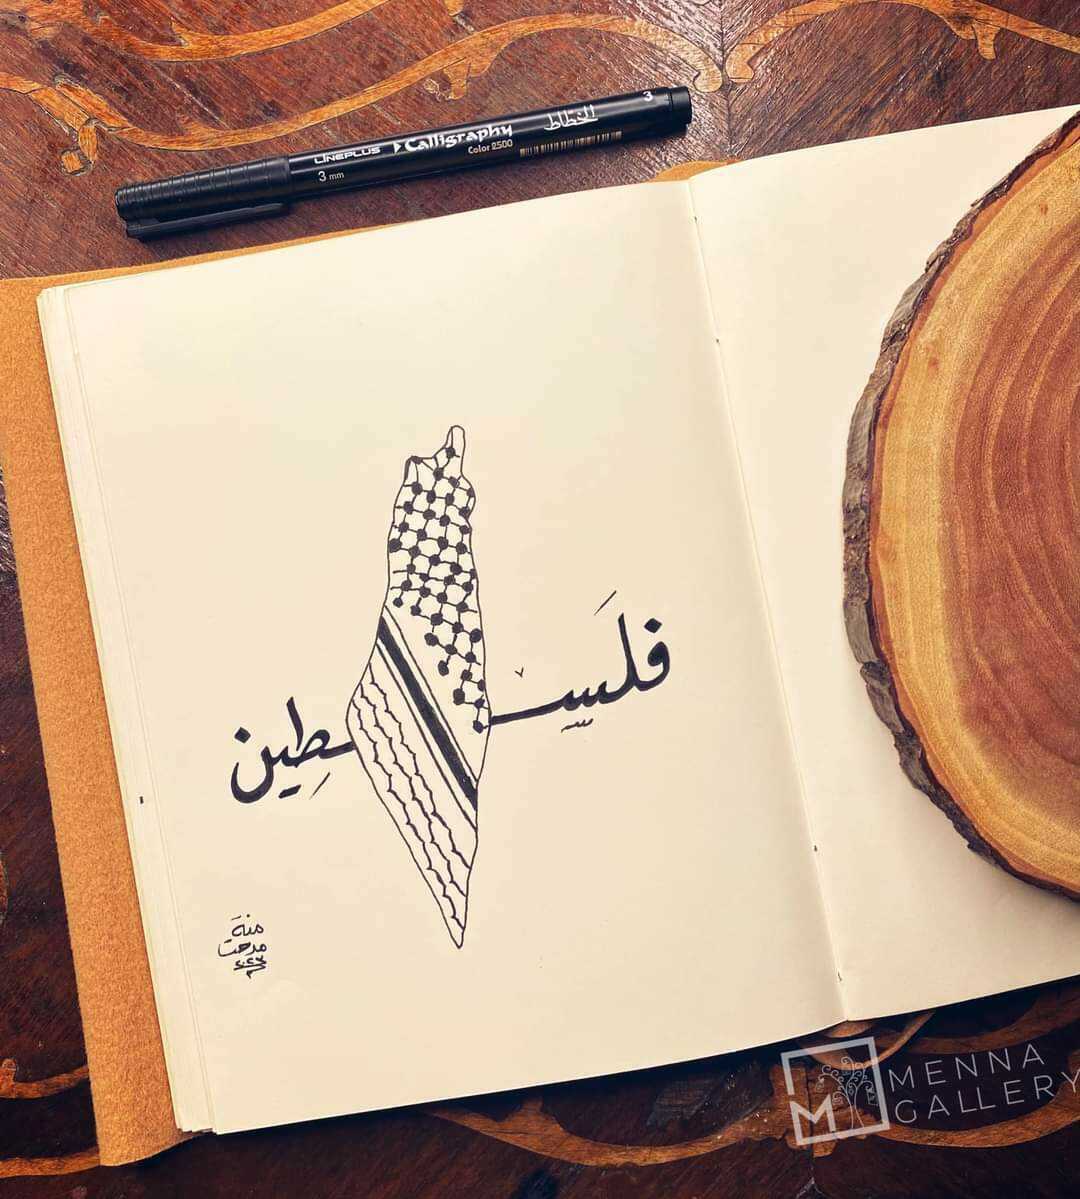 LINEPLUS Calligraphy الخطاط 3
3 mm Color 2500
فلَسِْطِين
منة
مدحت
٢٠٢٣
MENNA
GALLERY